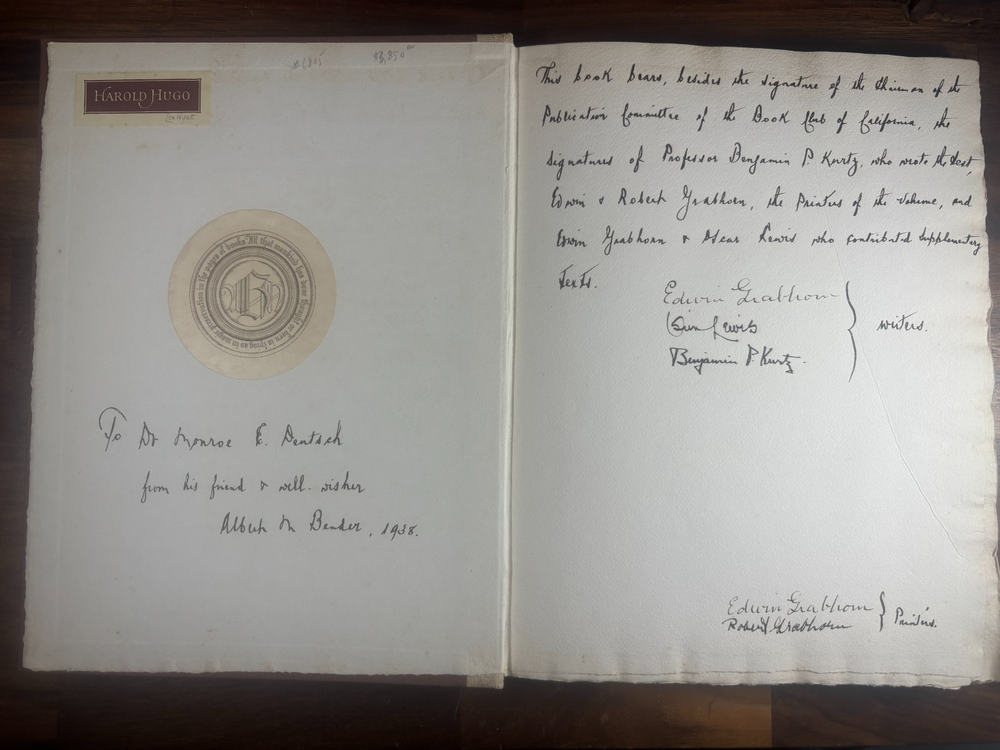 $3,850
HAROLD HUGO
All that mankind has done thought or been is lying as in magic preservation in the pages of books
B
To Dr Monroe E. Deutsch
from his friend & well-wisher
Albert M Bender, 1938.
This book bears, besides the signature of the Chairman of the
Publication Committee of the Book Club of California, the
signatures of Professor Benjamin P. Kurtz, who wrote the text,
Edwin & Robert Grabhorn, the Printers of the volume, and
Edwin Grabhorn & Oscar Lewis who contributed supplementary
texts.
Edwin Grabhorn
Oscar Lewis
Benjamin P. Kurtz.
writers.
Edwin Grabhorn
Robert Grabhorn
Printers.